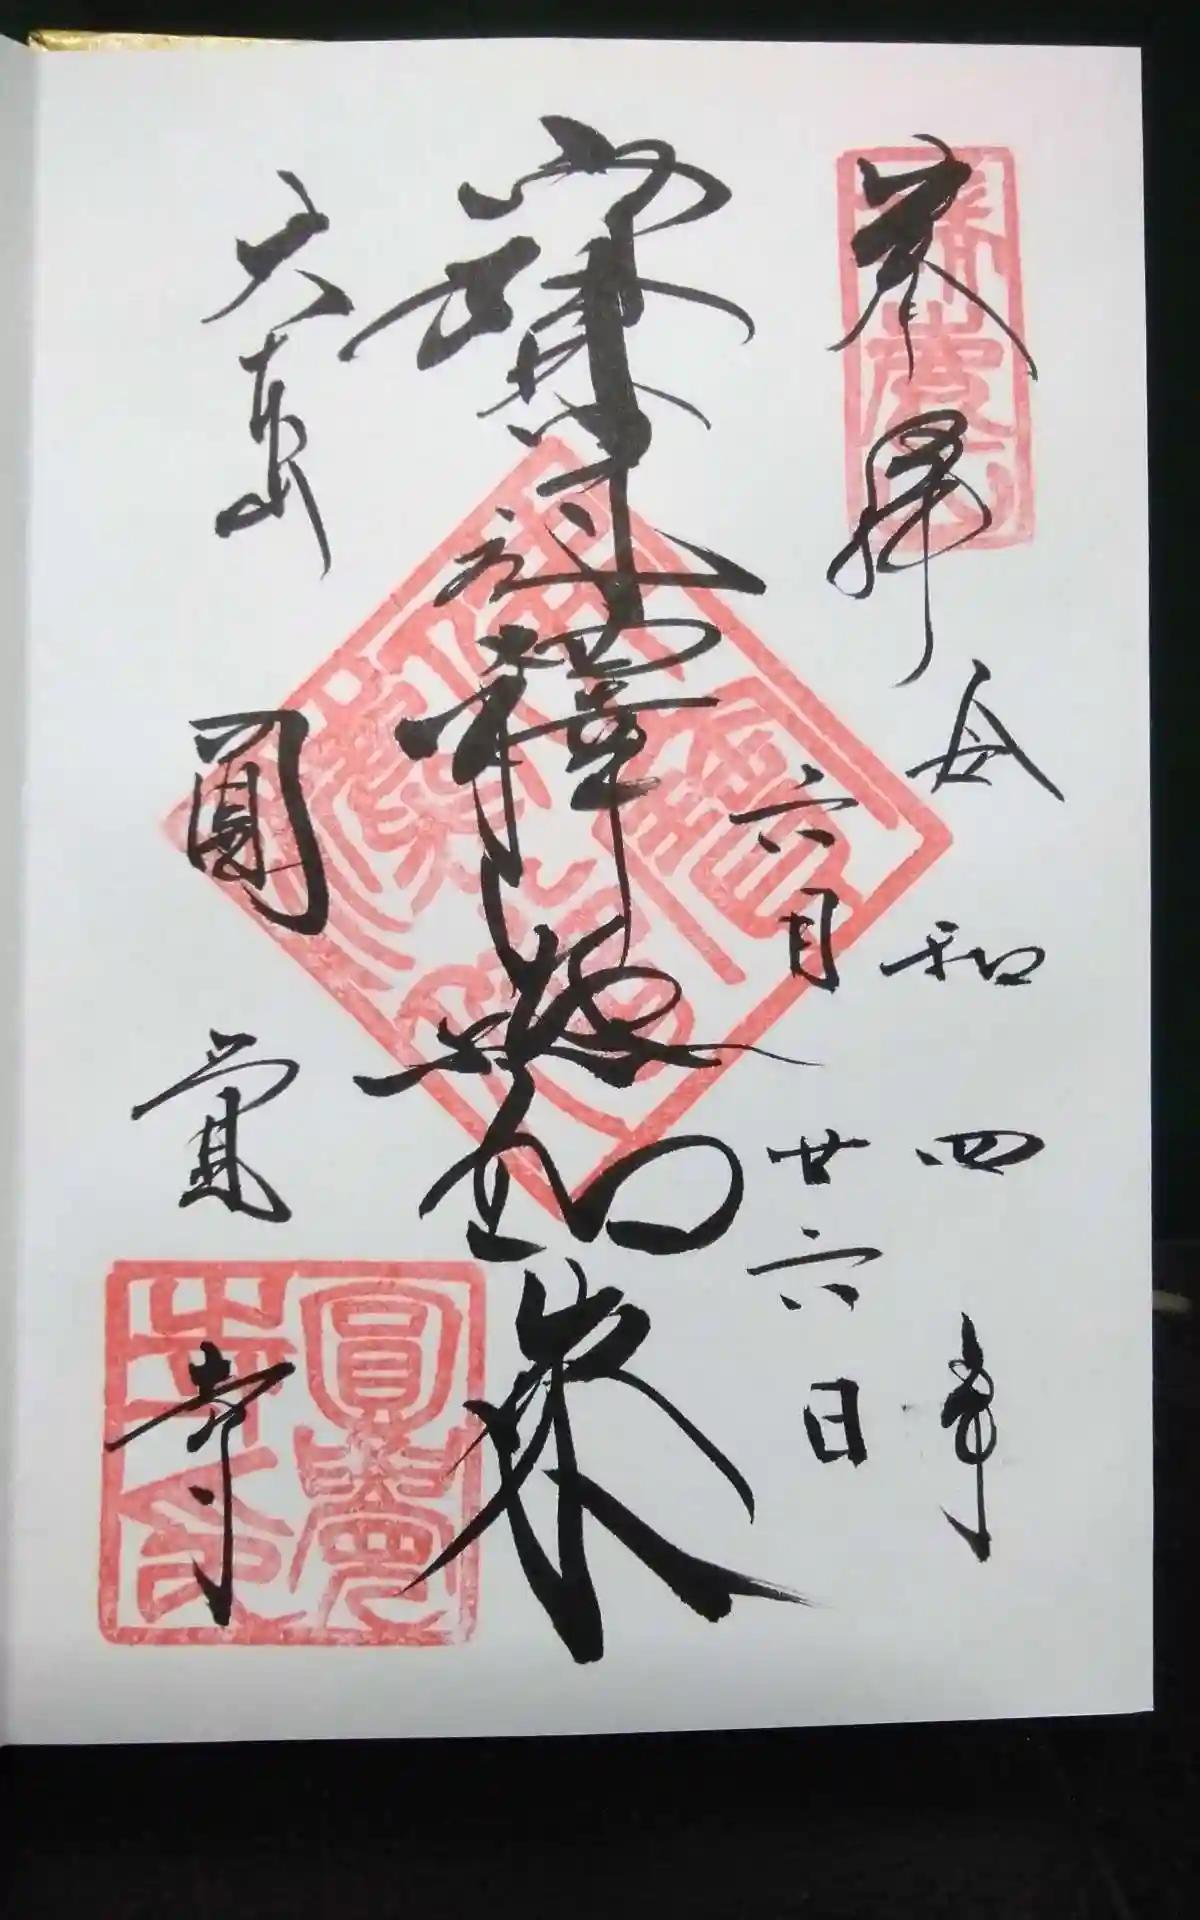 奉拝
令和四年
六月廿六日
寶冠釋迦如来
大本山
圓覚寺
瑞鹿山
圓覺
寺印